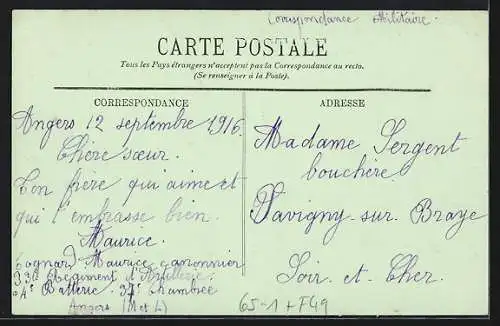 Correspondance Militaire.
CARTE POSTALE
Tous les Pays étrangers n'acceptent pas la Correspondance au recto.
(Se renseigner à la Poste).
CORRESPONDANCE
Angers 12 septembre 1916
Chère sœur.
Ton frère qui aime et
qui t'embrasse bien.
Maurice.
Cognard Maurice canonnier
33e Regiment d'Artillerie
4e Batterie. 37e Chambrée
Angers (M et L)
ADRESSE
Madame Sergent
bouchère
Savigny-sur-Braye
Loir-et-Cher
65-1+F49